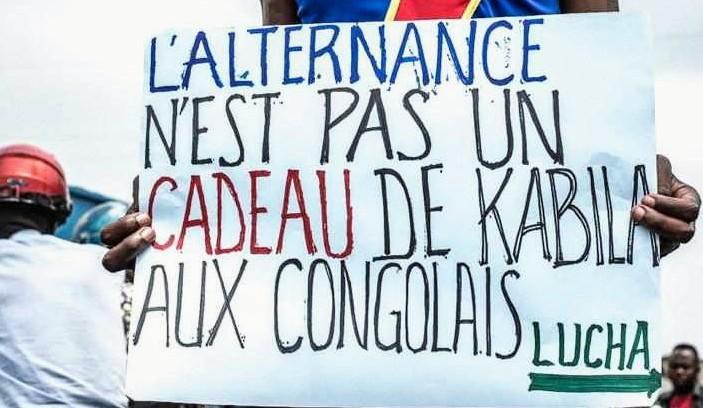 L'ALTERNANCE
N'EST PAS UN
CADEAU DE KABILA
AUX CONGOLAIS
LUCHA